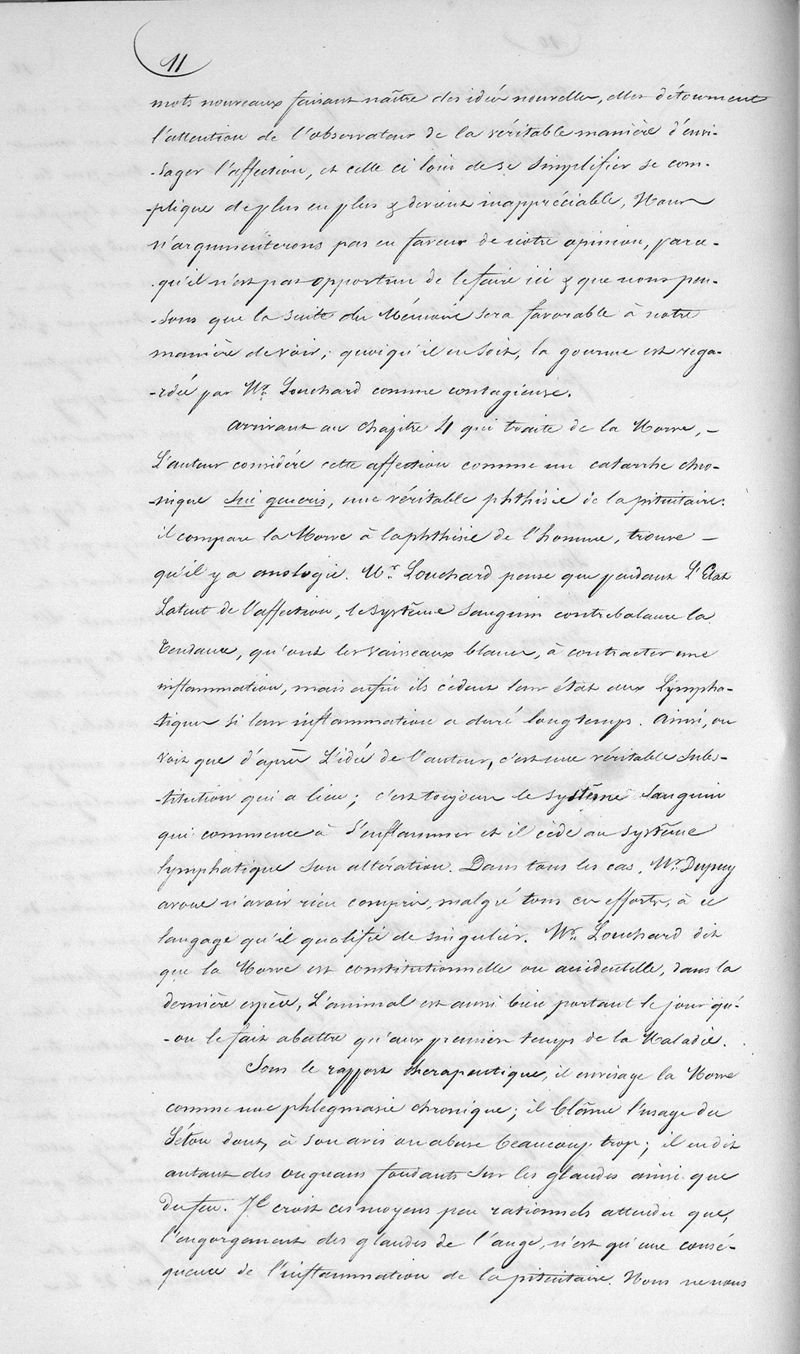 11
mots nouveaux faisant naître des idées nouvelles, elles détournent
l'attention de l'observateur de la véritable manière d'envi-
-sager l'affection, et celle ci loin de se simplifier se com-
-plique de plus en plus & devient inappréciable, Nous
n'argumenterons pas en faveur de notre opinion, parce-
-qu'il n'est pas opportun de le faire ici & que nous pen-
-sons que la suite du Mémoire sera favorable à notre
manière de voir; quoiqu'il en soit, la gourme est rega-
-rdée par Mr. Louchard comme contagieuse.
Arrivant au chapitre 4 qui traite de la Morve, -
L'auteur considére cette affection comme un catarrhe chro-
-nique sui generis, une véritable phthisie de la pituitaire.
il compare la Morve à la phthisie de l'homme, trouve -
qu'il y a analogie. Mr. Louchard pense que pendant l'Etat
Latent de l'affection, le système sanguin contrebalance la
tendance, qu'ont les vaisseaux blancs, à contracter une
inflammation, mais enfin ils cèdent leur état aux lympha-
-tiques si leur inflammation a duré longtemps. Ainsi, on
voit que d'après L'idée de l'auteur, c'est une véritable subs-
-titution qui a lieu; c'est toujours le système sanguin
qui commence à s'enflammer et il cède au système
lymphatique son altération. Dans tous les cas, Mr. Dupuy
avoue n'avoir rien compris, malgré tous ces efforts, à ce
langage qu'il qualifie de singulier. Mr. Louchard dit
que la Morve est constitutionnelle ou accidentelle, dans la
dernière espèce, L'animal est aussi bien portant le jour qu'-
-on le fait abattre qu'aux premiers temps de la Maladie.
Sous le rapport thérapeutique, il envisage la Morve
comme une phlegmasie chronique; il blâme l'usage du
Séton dont, à son avis on abuse beaucoup trop; il en dit
autant des onguens fondants sur les glandes ainsi que
du feu. Il croit ces moyens peu rationnels attendu que,
l'engorgement des glandes de l'auge, n'est qu'une consé-
quence de l'inflammation de la pituitaire. Nous ne nous